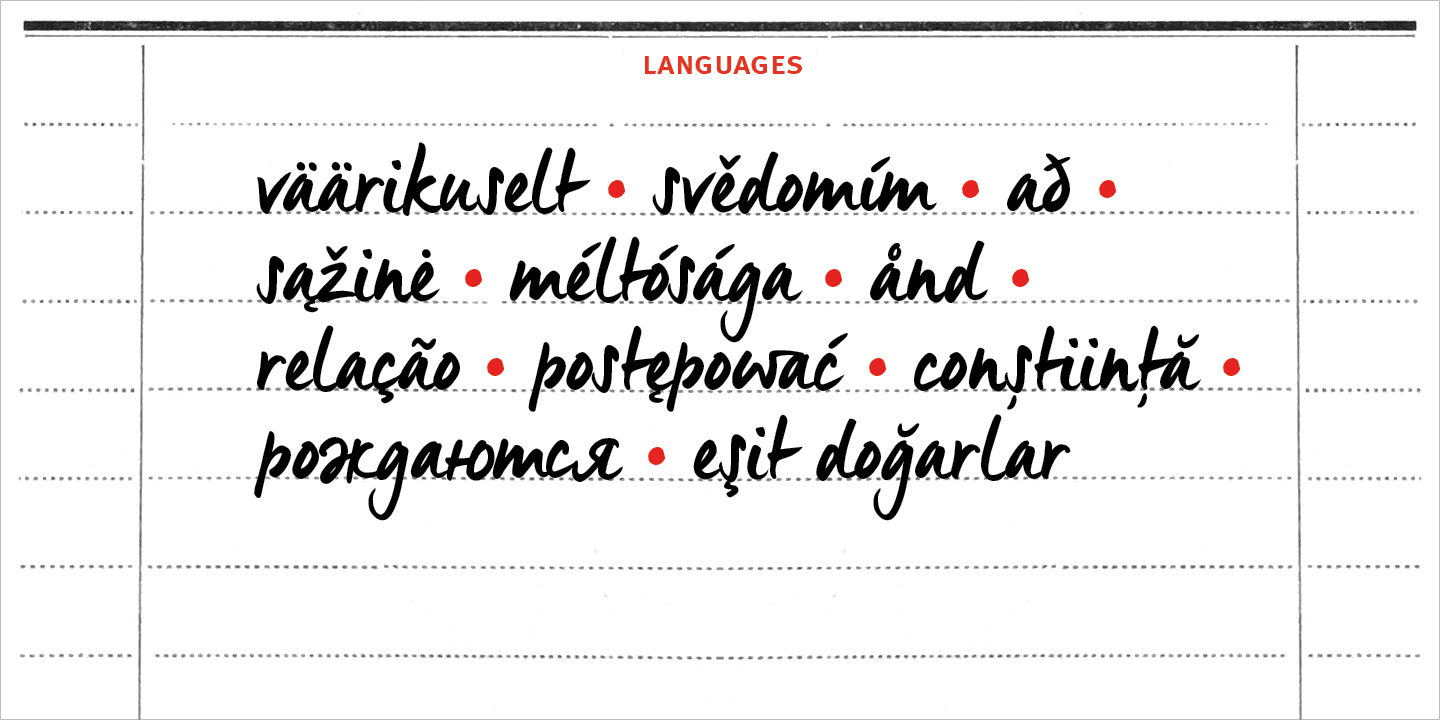 LANGUAGES
väärikuselt • svědomím • að •
sąžinė • méltósága • ånd •
relação • postępować • conștiință •
рождаются • eşit doğarlar